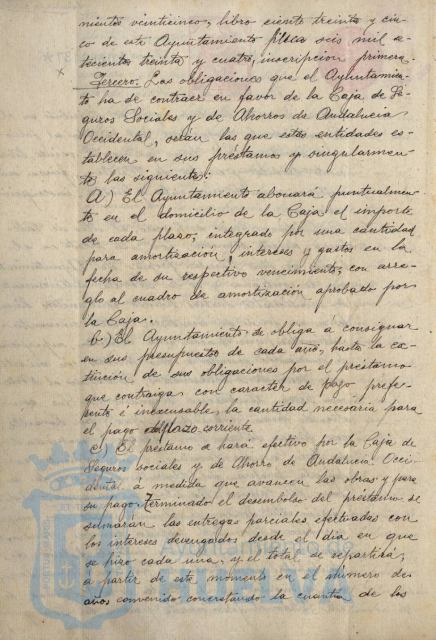 mientos veinticinco, libro ciento treinta y cin-
co de este Ayuntamiento finca seis mil se-
tecientos treinta y cuatro, inscripcion primera.
Tercero. Las obligaciones que el Ayuntamien-
to ha de contraer en favor de la Caja de Se-
guros Sociales y de Ahorros de Andalucia
Occidental, serán las que estas entidades es-
tablecen en sus préstamos y singularmen-
te las siguientes:
A) El Ayuntamiento abonará puntualmen-
te en el domicilio de la Caja el importe
de cada plazo, integrado por una cantidad
para amortización, intereses y gastos en la
fecha de su respectivo vencimiento, con arre-
glo al cuadro de amortización aprobado por
la Caja.
b) El Ayuntamiento se obliga á consignar
en sus presupuestos de cada año, hasta la ex-
tinción de sus obligaciones por el préstamo
que contraiga, con caracter de pago prefe-
rente é inexcusable, la cantidad necesaria para
el pago del plazo corriente
c) El préstamo se hará efectivo por la Caja de
Seguros sociales y de Ahorro de Andalucia Occi-
dental á medida que avancen las obras y para
su pago. Terminado el desembolso del préstamo se
sumarán las entregas parciales efectuadas con
los intereses devengados desde el dia en que
se hizo cada una, y el total se repartirá,
a partir de este momento en el número de
años convenido concretando la cuantía de los